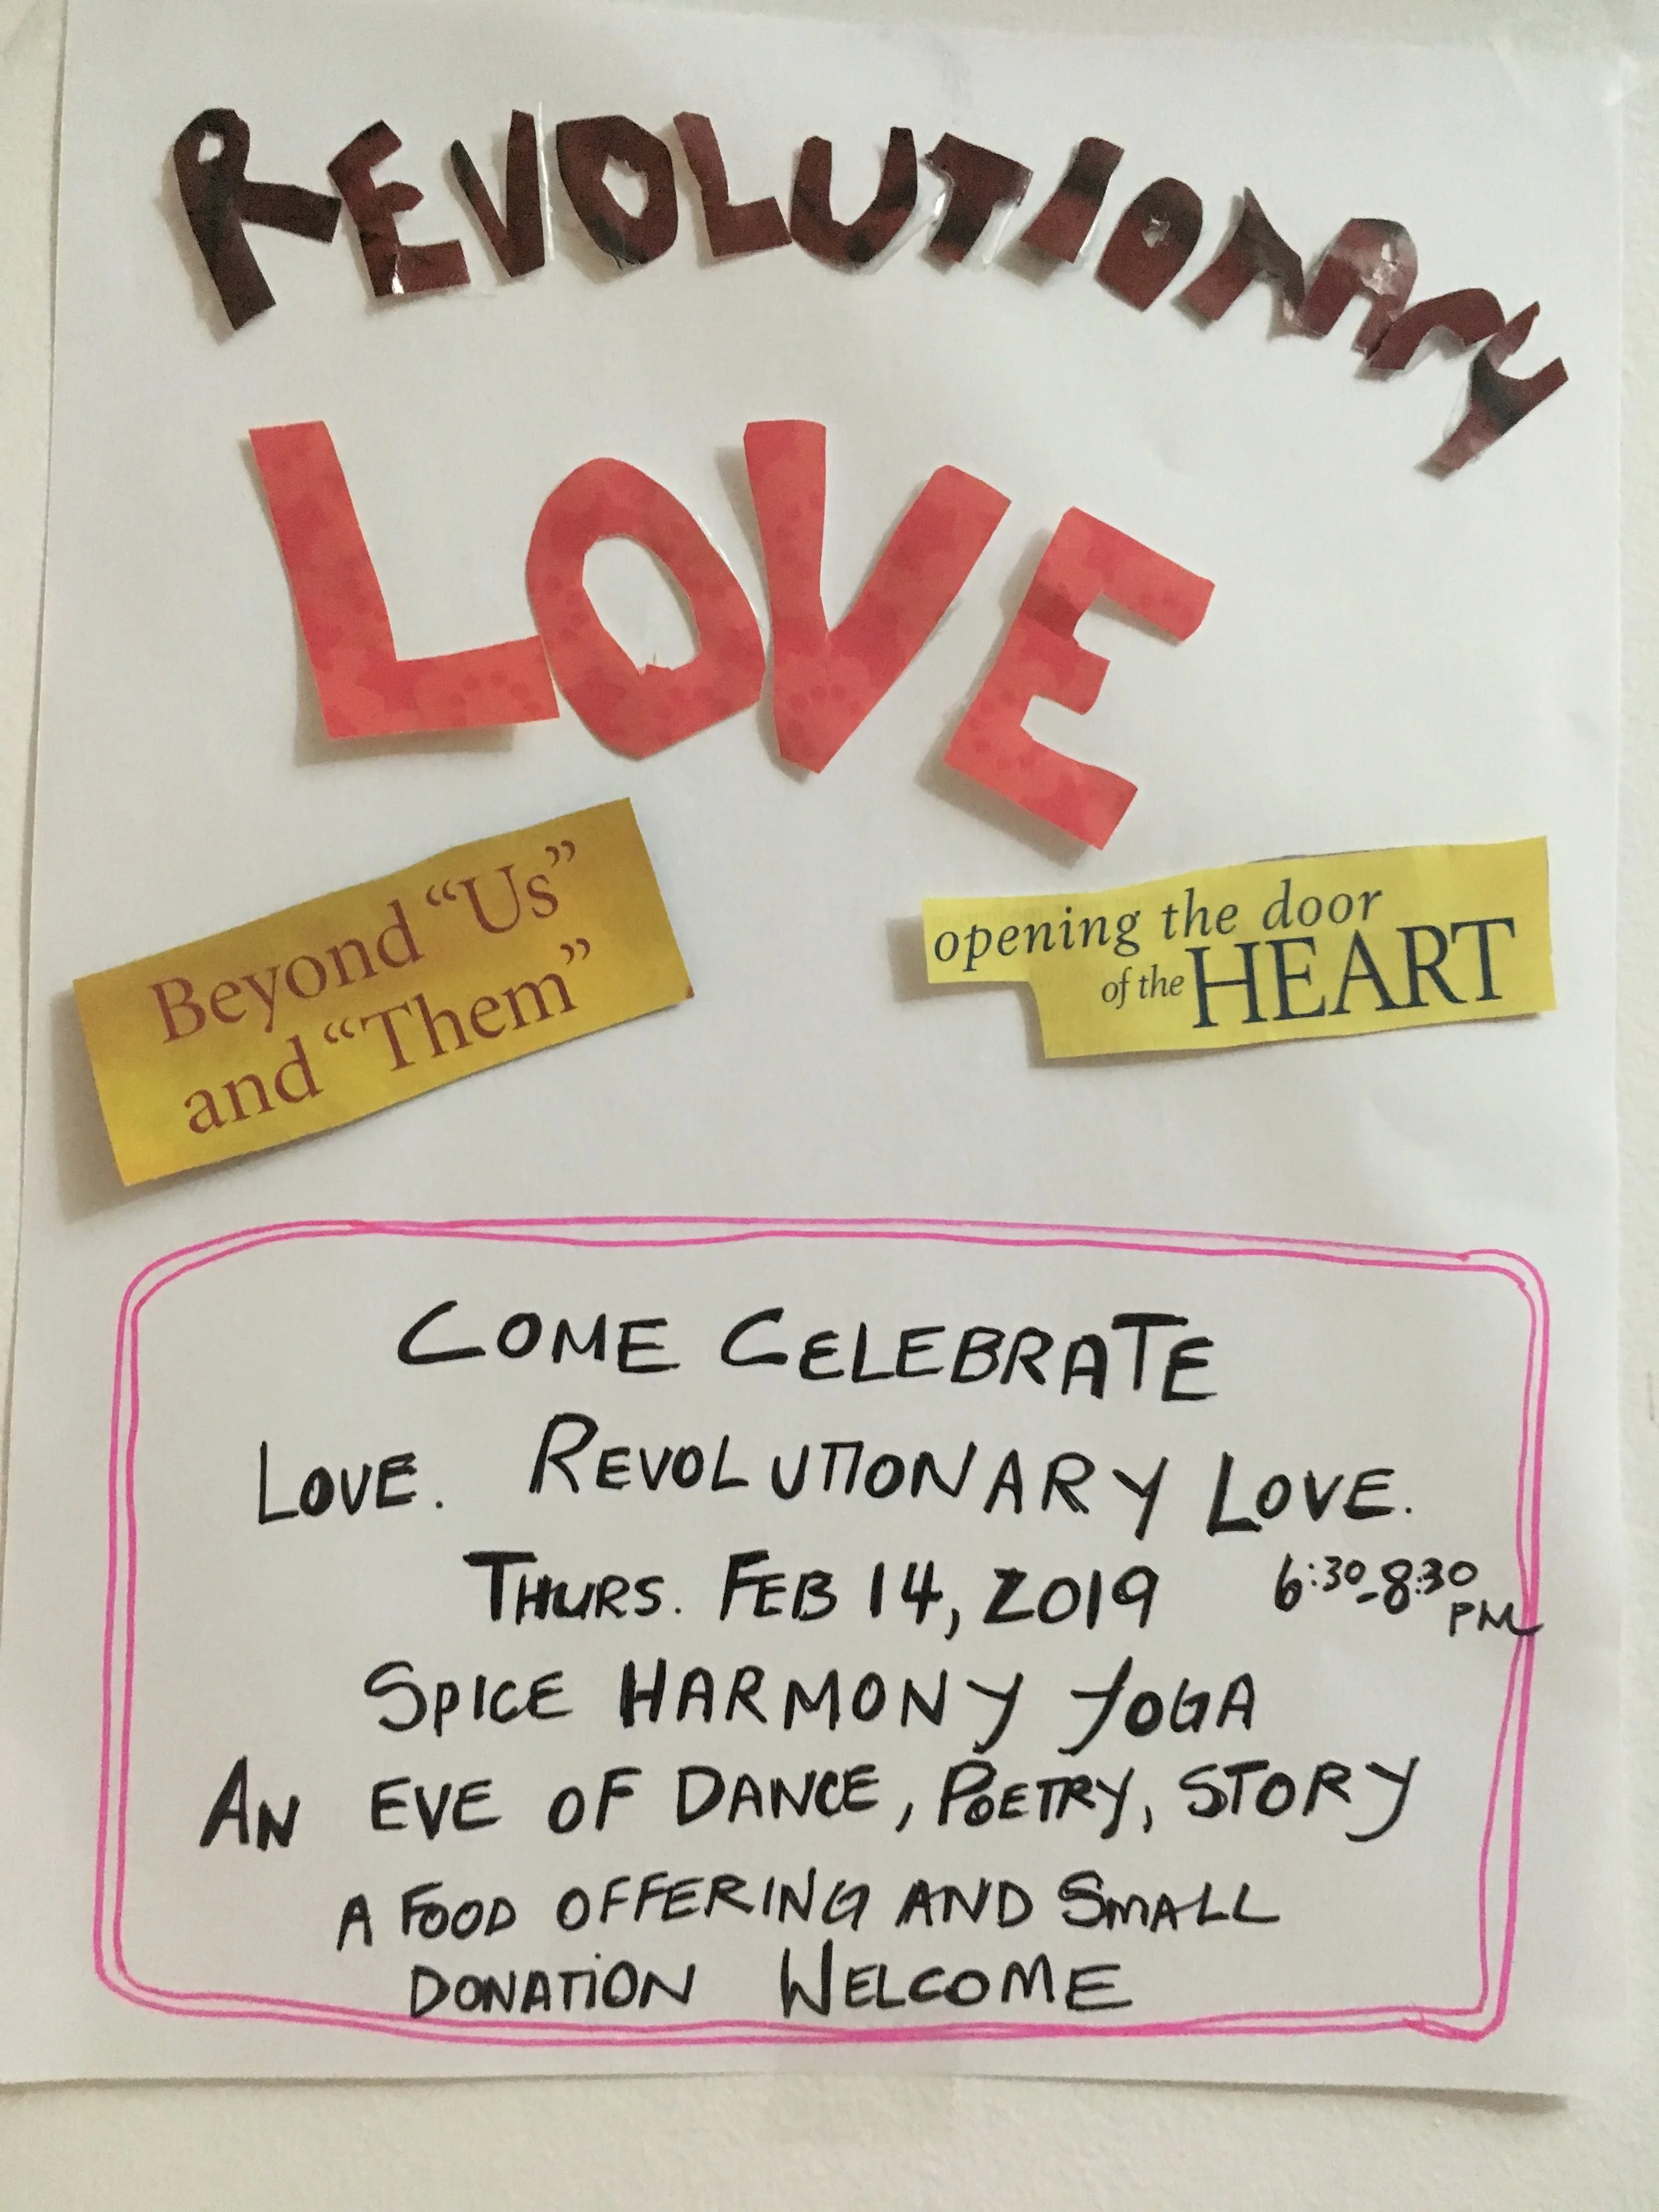 REVOLUTIONARY
LOVE
Beyond “Us”
and “Them”
opening the door
of the HEART
COME CELEBRATE
LOVE. REVOLUTIONARY LOVE.
THURS. FEB 14, 2019 6:30-8:30 PM
SPICE HARMONY YOGA
AN EVE OF DANCE, POETRY, STORY
A FOOD OFFERING AND SMALL
DONATION WELCOME